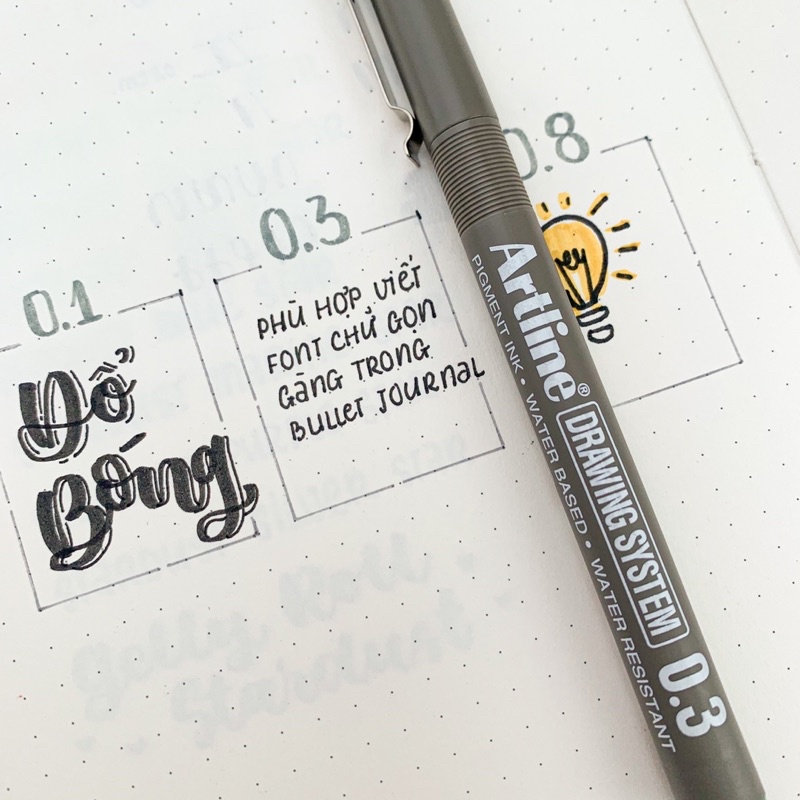 0.1
Đổ
Bóng
0.3
PHÙ HỢP VIẾT
FONT CHỮ GỌN
GÀNG TRONG
BULLET JOURNAL
0.8
Artline®
DRAWING SYSTEM 0.3
PIGMENT INK • WATER BASED • WATER RESISTANT
Gelly Roll
Stardust